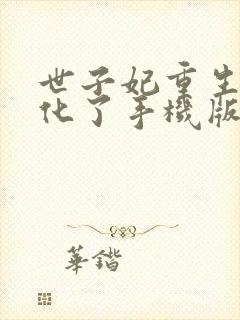 世子妃重生
化了手機版
華鍇